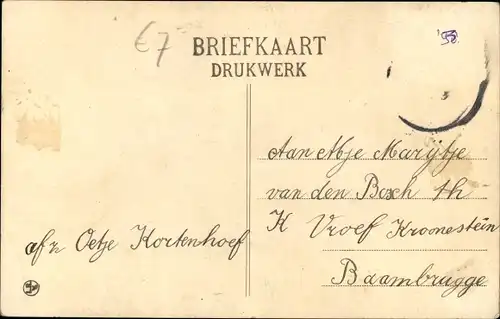 €7
'58.
BRIEFKAART
DRUKWERK
Aan Abje Marijtje
van den Bosch th
K Vroef Kroonestein
Baambrugge
afz Oetje Kortenhoef